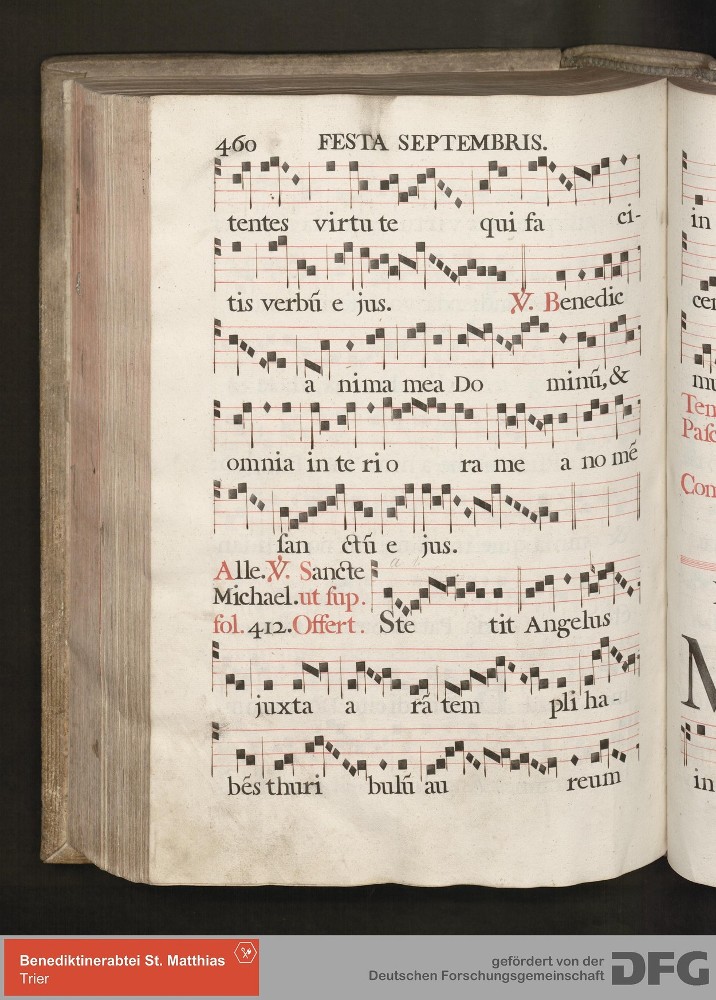 460 FESTA SEPTEMBRIS.
tentes virtu te qui fa ci-
tis verbũ e jus. V. Benedic
a nima mea Do minũ, &
omnia in te ri o ra me a no mẽ
ſan ctũ e jus.
Alle. V. Sancte
Michael. ut ſup.
fol. 412. Offert. Ste tit Angelus
juxta a rã tem pli ha-
bẽs thuri bulũ au reum
in
cen
mu
Tem
Paſc
Com
M
in
Benediktinerabtei St. Matthias
Trier
gefördert von der
Deutschen Forschungsgemeinschaft
DFG